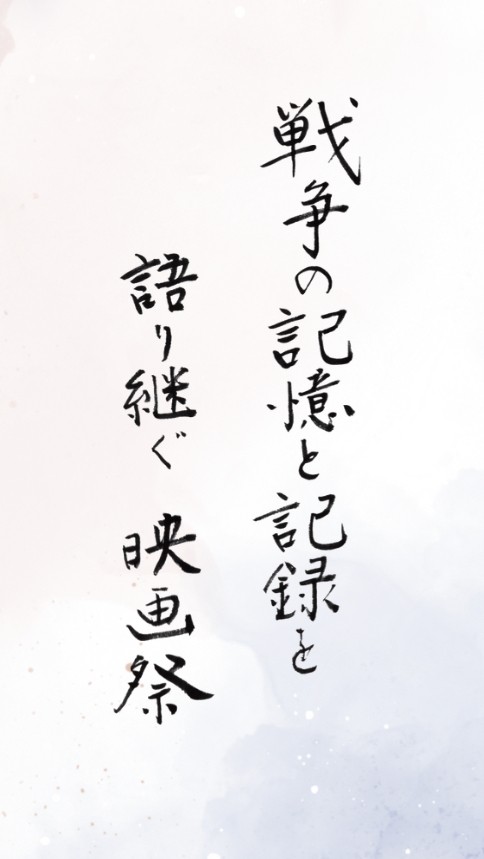 戦争の記憶と記録を
語り継ぐ 映画祭